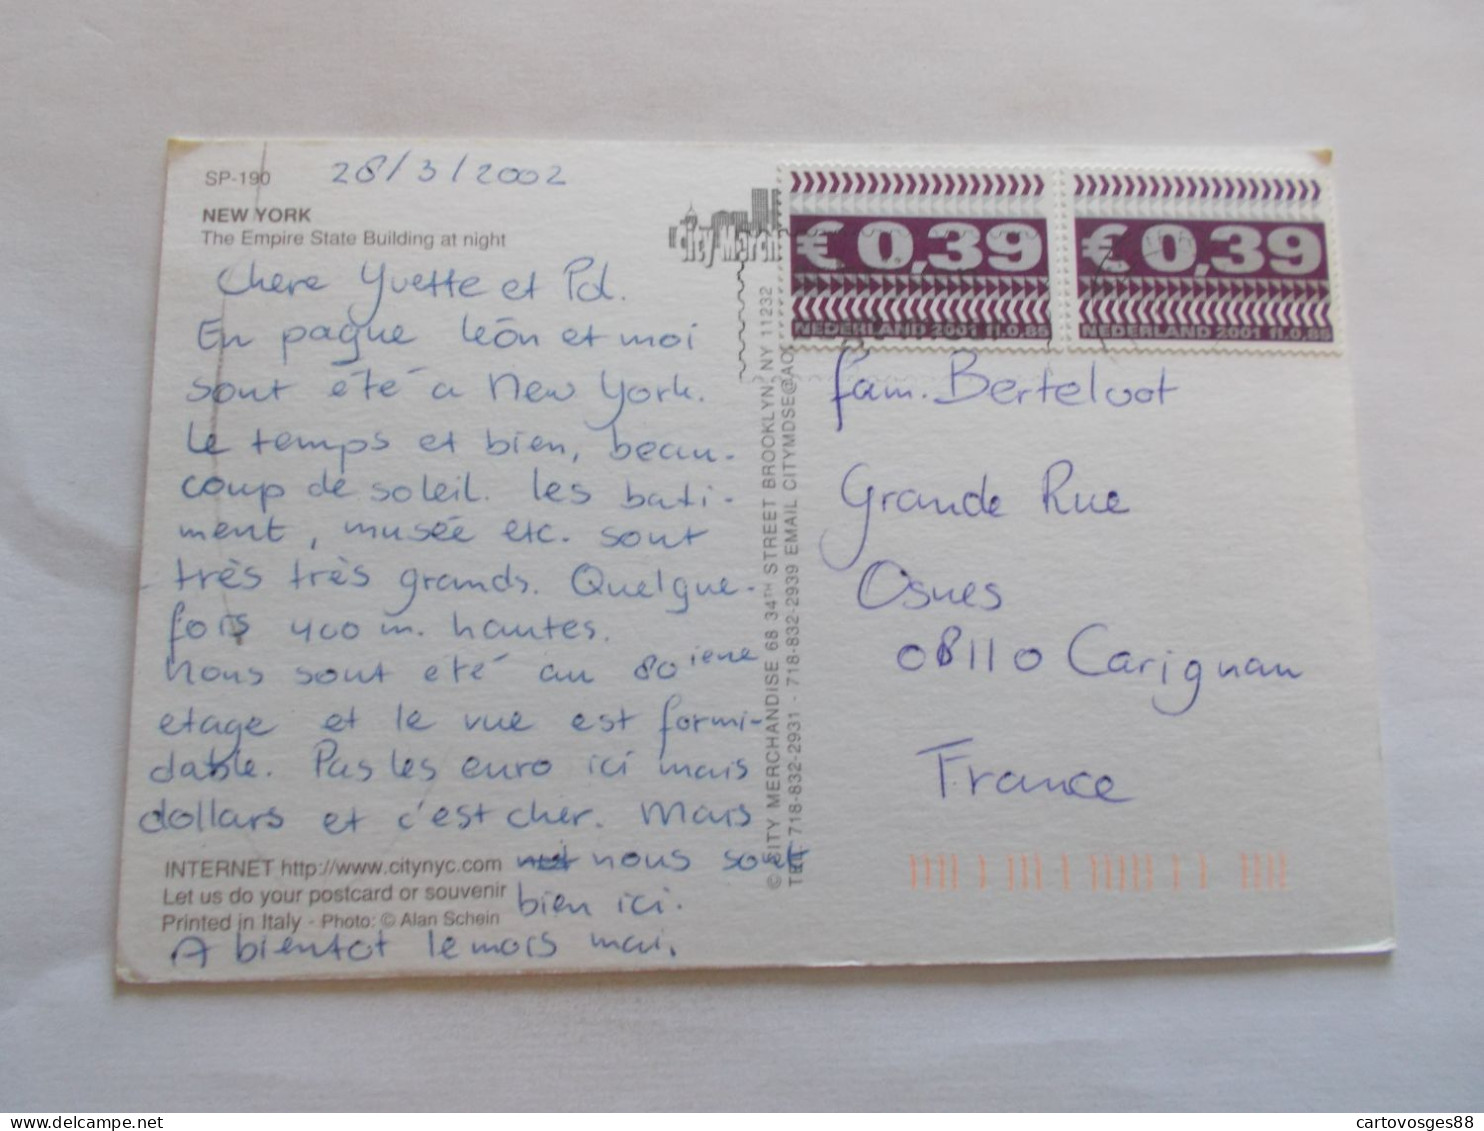 SP-190
28/3/2002
NEW YORK
The Empire State Building at night
Chere Yvette et Pol.
En paque león et moi
sont été a New York.
Le temps et bien, beau-
coup de soleil. les bati-
ment, musée etc. sont
très très grands. Quelque-
fois 400 m. hautes.
nous sont eté au 80iene
etage et le vue est formi-
dable. Pas les euro ici mais
dollars et c'est cher. Mais
nous sont
bien ici.
A bientot le mois mai.
INTERNET http://www.citynyc.com
Let us do your postcard or souvenir
Printed in Italy - Photo: © Alan Schein
City Merch
© CITY MERCHANDISE 68 34TH STREET BROOKLYN, NY 11232
TEL 718-832-2931 - 718-832-2939 EMAIL CITYMDSE@AO
€ 0,39
NEDERLAND 2001 fl.0,86
€ 0,39
NEDERLAND 2001 fl.0,86
fam. Bertelvot
Grande Rue
Osnes
08110 Carignan
France
cartovosges88